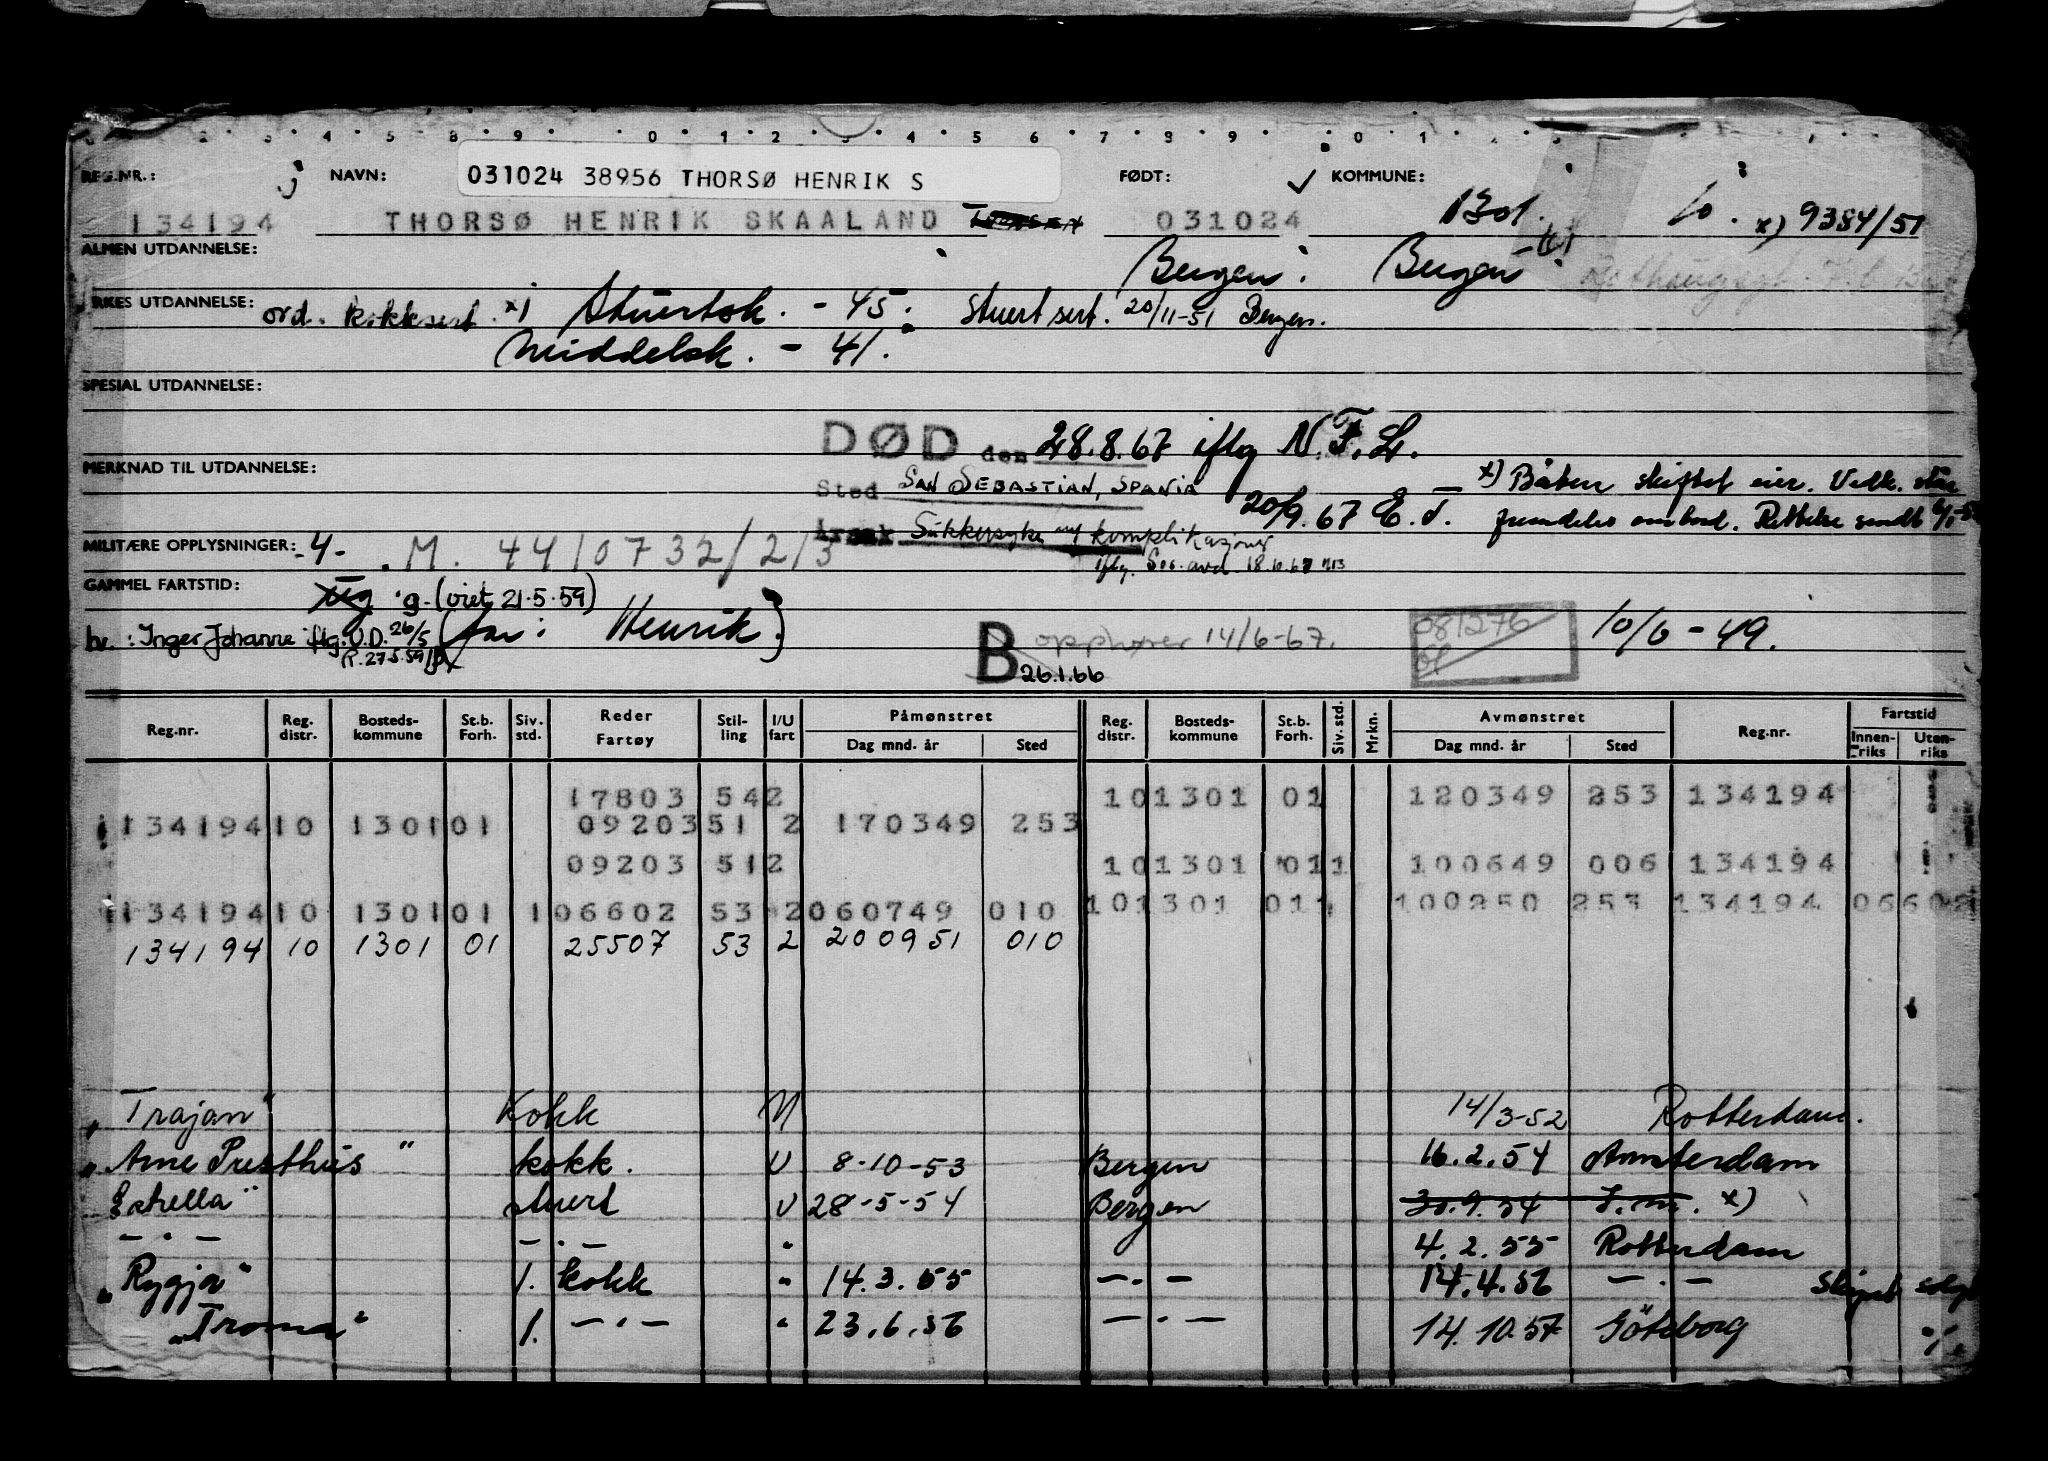 REG.NR.: NAVN: 031024 38956 THORSØ HENRIK S FØDT: KOMMUNE:
134194 THORSØ HENRIK SKAALAND 031024 1301. 10. x) 9384/51
ALMEN UTDANNELSE: Bergen. Bergen
YRKES UTDANNELSE: ord. kokksert. x) Stuertsk. - 45. Stuert sert. 20/11-51 Bergen.
Middelsk. - 41.
SPESIAL UTDANNELSE:
DØD den 28.8.67 iflg N.F.L.
MERKNAD TIL UTDANNELSE:
Sted SAN SEBASTIAN, SPANIA x) Båten skiftet eier. Vedk. står
20/9.67 E.T. fremdeles ombord. Rettelse sendt
Sukkersyke m/ komplikasjoner
MILITÆRE OPPLYSNINGER: -4- . M. 4410732/2/3 iflg. Sos.avd. 18.10.67
GAMMEL FARTSTID:
Ug g. (viet 21.5.59)
hv.: Inger Johanne iflg. U.D. 26/5 (far: Henrik.)
R. 27.5.59
B opphører 14/6-67. 081276 10/6-49.
26.1.66
Reg.nr. Reg. distr. Bosteds-kommune St.b. Forh. Siv. std. Reder Fartøy Stil-ling I/U fart Påmønstret Dag mnd. år Sted Reg. distr. Bosteds-kommune St.b. Forh. Siv. std. Mrkn. Avmønstret Dag mnd. år Sted Reg.nr. Fartstid Innen-riks Uten-riks
17803 542 101301 01 120349 253 134194
134194 10 1301 01 09203 51 2 170349 253
09203 512 101301 011 100649 006 134194
134194 10 1301 01 1 06602 53 2 060749 010 101301 011 100250 253 134194 06602
134194 10 1301 01 25507 53 2 200951 010
"Trajan" Kokk U 14/3-52 Rotterdam.
"Arne Presthus" kokk. U 8-10-53 Bergen 16.2.54 Amsterdam
Estrella" stuert U 28-5-54 Bergen 30.9.54 x)
- . - - . - " 4.2.55 Rotterdam
"Rygja" 1. kokk " 14.3.55 - . - 14.4.56 - . - Skipet solgt
"Troma" 1. - . - " 23.6.56 - . - 14.10.57 Göteborg %